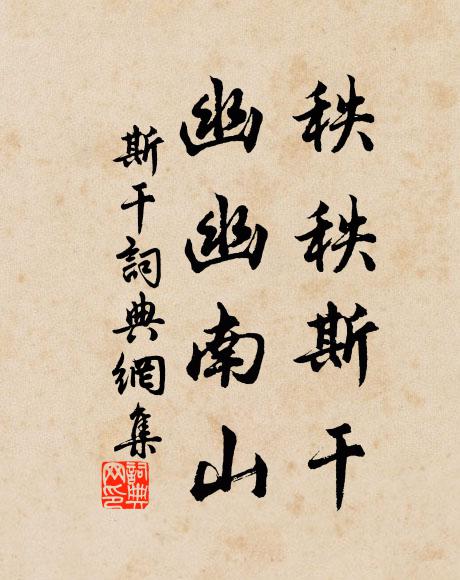 秩秩斯干
幽幽南山
斯干詞典網集
詞典
网印